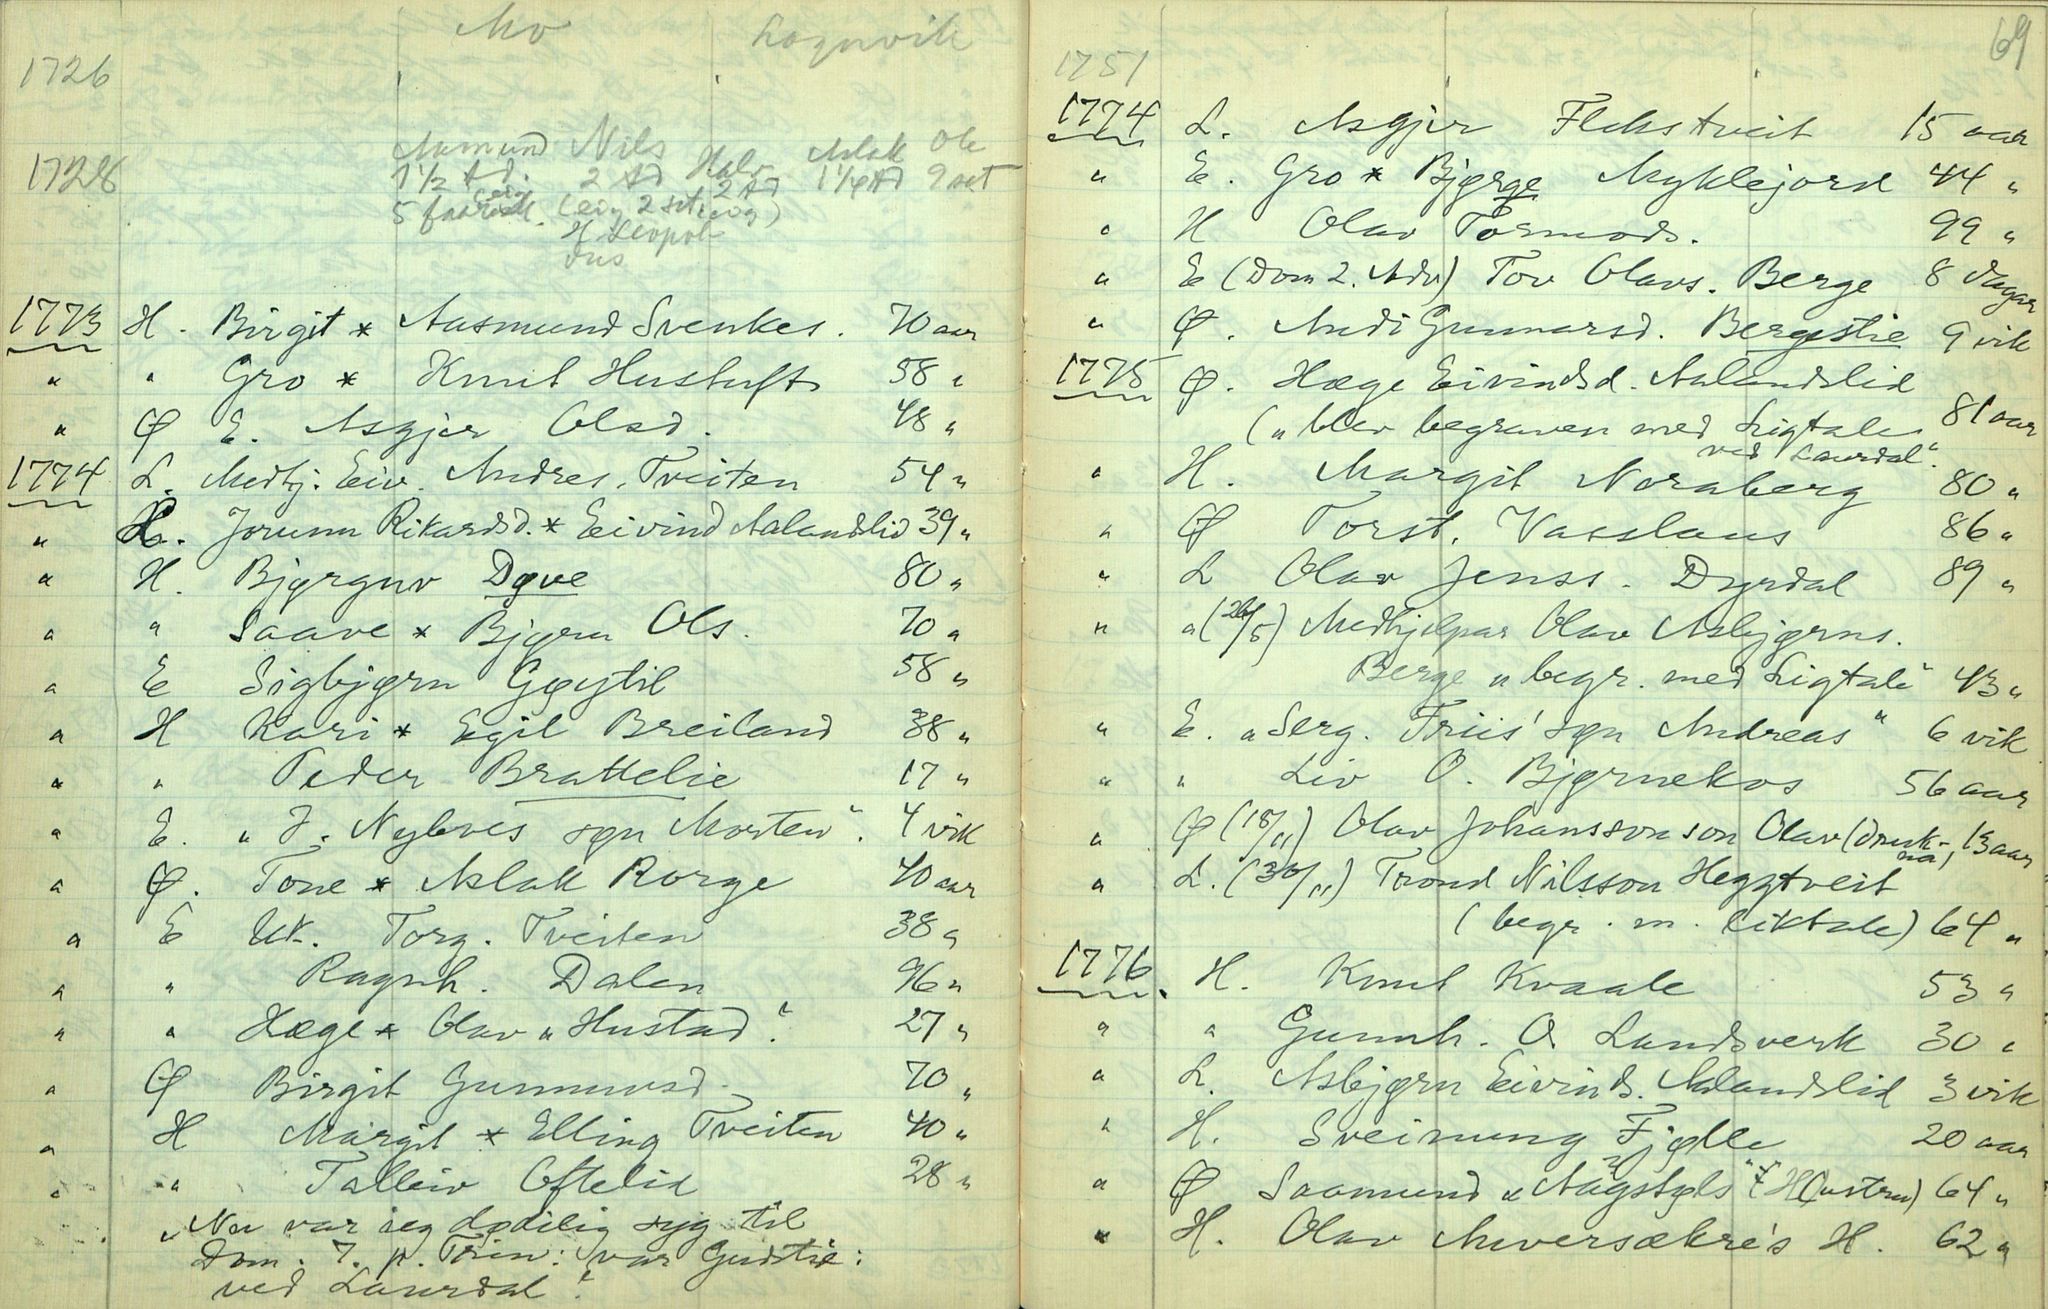 Mo Lognvik
1726
1728
Aamund Nils Halv Aslak Ole
1½ td. 2 td 2 td 1¼ td 9 set
5 (eig 2 set
1773 H. Birgit * Aasmund Svenkes. 70 aar
" " Gro * Knut Hustuft 58 "
" Ø E. Asgjer Olsd. 48 "
1774 L. Medhj. Eiv. Andres. Tveiten 54 "
" L. Jorunn Rikardsd. * Eivind Aalandslid 39 "
" H. Bjørguv Døve 80 "
" " Saave * Bjørn Ols. 70 "
" E Sigbjørn Gøytil 58 "
" H Kari * Egil Breiland 38 "
" " Peder Brattelie 17 "
" E. " J. Nyboes søn Morten". 4 vik
" Ø. Tone * Aslak Rorge 40 aar
" E Torg. Tveiten 38 "
" " Ragnh. Dalen 96 "
" " Hæge * Olav "Hustad". 27 "
" Ø Birgit Gunnarsd. 70 "
" H Margit * Elling Tveiten 40 "
" " Talleiv Oftelid 28 "
"Nu var jeg dødelig syg til
Dom. 7. p. Trin: var Gudstie:
ved Laurdal".
69
1751
1774 L. Asgjer Flekstveit 15 aar
" E. Gro * Bjørge Myklejord 44 "
" H Olav Tormods. 99 "
" E (Dom 2. Adv) Tov Olavs. Berge 8 dagar
" Ø. Andi Gunnarsd. Bergestie 9 vik
1775 Ø. Hæge Eivindsd. Aalandslid
("blev begraven med Ligtale 81 aar
ved Laurdal".
" H. Margit Noraberg 80 "
" Ø Torst. Vasslaus 86 "
" L Olav Jenss. Dyrdal 89 "
" " (26/5) Medhjelpar Olav Asbjørns.
Berge "begr. med Ligtale" 43 "
" E. "Serg. Friis' søn Andreas" 6 vik
" " Liv O. Bjørnekos 56 aar
" Ø (18/11) Olav Johansson son Olav (druk-
na) 13 aar
" L. (30/11) Trond Nilsson Heggtveit
(begr. m. liktale) 64 "
1776 H. Knut Kvaale 53 "
" " Gunnh. O. Landsverk 30 "
" L. Asbjørn Eivinds. Aalandslid 3 vik
" H. Sveinung Fjølle 20 aar
" Ø Saamund "Aagstøls" H(ustru) 64 "
" H. Olav Aaversækre's H. 62 "